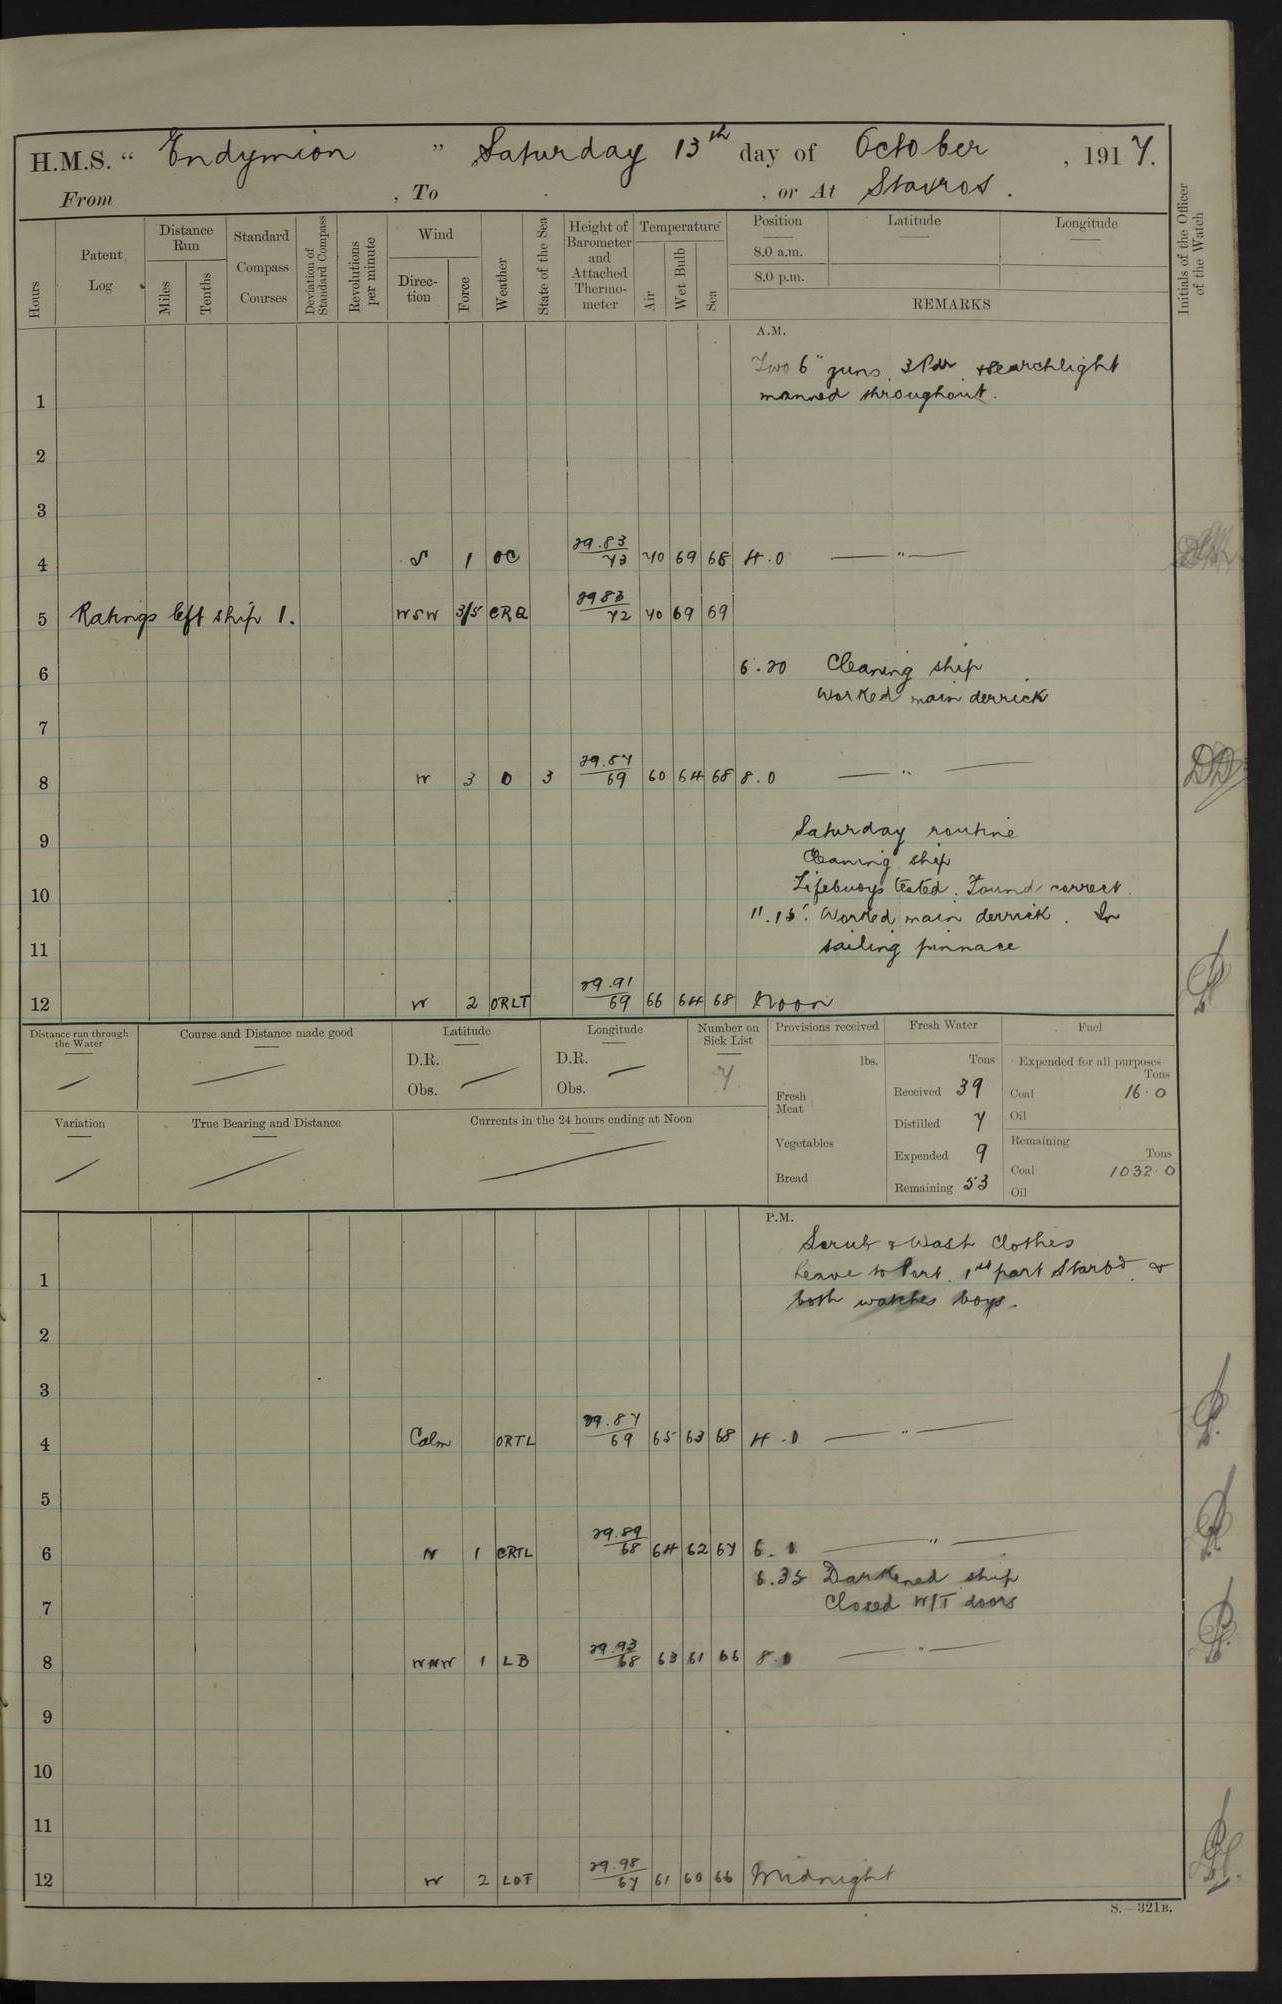 H.M.S. " Endymion " Saturday 13th day of October , 1917.
From , To . , or At Stavros .
Hours
Patent Log
Distance Run
Miles
Tenths
Standard Compass Courses
Deviation of Standard Compass
Revolutions per minute
Wind
Direction
Force
Weather
State of the Sea
Height of Barometer and Attached Thermometer
Temperature
Air
Wet Bulb
Sea
Position Latitude Longitude
8.0 a.m.
8.0 p.m.
REMARKS
Initials of the Officer of the Watch
A.M.
Two 6" guns. 3 Pdr + searchlight
1 manned throughout.
2
3
4 S 1 OC 29.83/73 70 69 68 4.0 — " —
5 Ratings left ship 1. WSW 3/5 CRQ 29 83/72 70 69 69
6 6.20 Cleaning ship
Worked main derrick
7
8 W 3 O 3 29.87/69 60 64 68 8.0 — " — DD
Saturday routine
9 Cleaning ship
10 Lifebuoys tested. Found correct.
11.15. Worked main derrick. In
11 sailing pinnace
12 W 2 ORLT 29.91/69 66 64 68 Noon
Distance run through the Water
Course and Distance made good
Latitude
D.R.
Obs.
Longitude
D.R.
Obs.
Number on Sick List
7
Variation
True Bearing and Distance
Currents in the 24 hours ending at Noon
Provisions received
lbs.
Fresh Meat
Vegetables
Bread
Fresh Water
Tons
Received 39
Distilled 7
Expended 9
Remaining 53
Fuel
Expended for all purposes
Tons
Coal 16.0
Oil
Remaining
Tons
Coal 1032.0
Oil
P.M.
Scrub & Wash Clothes
1 Leave to Port. 1st part Starbd. &
both watches boys.
2
3
4 Calm ORTL 29.87/69 65 63 68 4.0 — " —
5
6 N 1 CRTL 29.89/68 64 62 67 6.0 — " —
6.35 Darkened ship
7 Closed W/T doors
8 WNW 1 LB 29.93/68 63 61 66 8.0 — " —
9
10
11
12 W 2 LOT 29.98/67 61 60 66 Midnight
S.—321B.